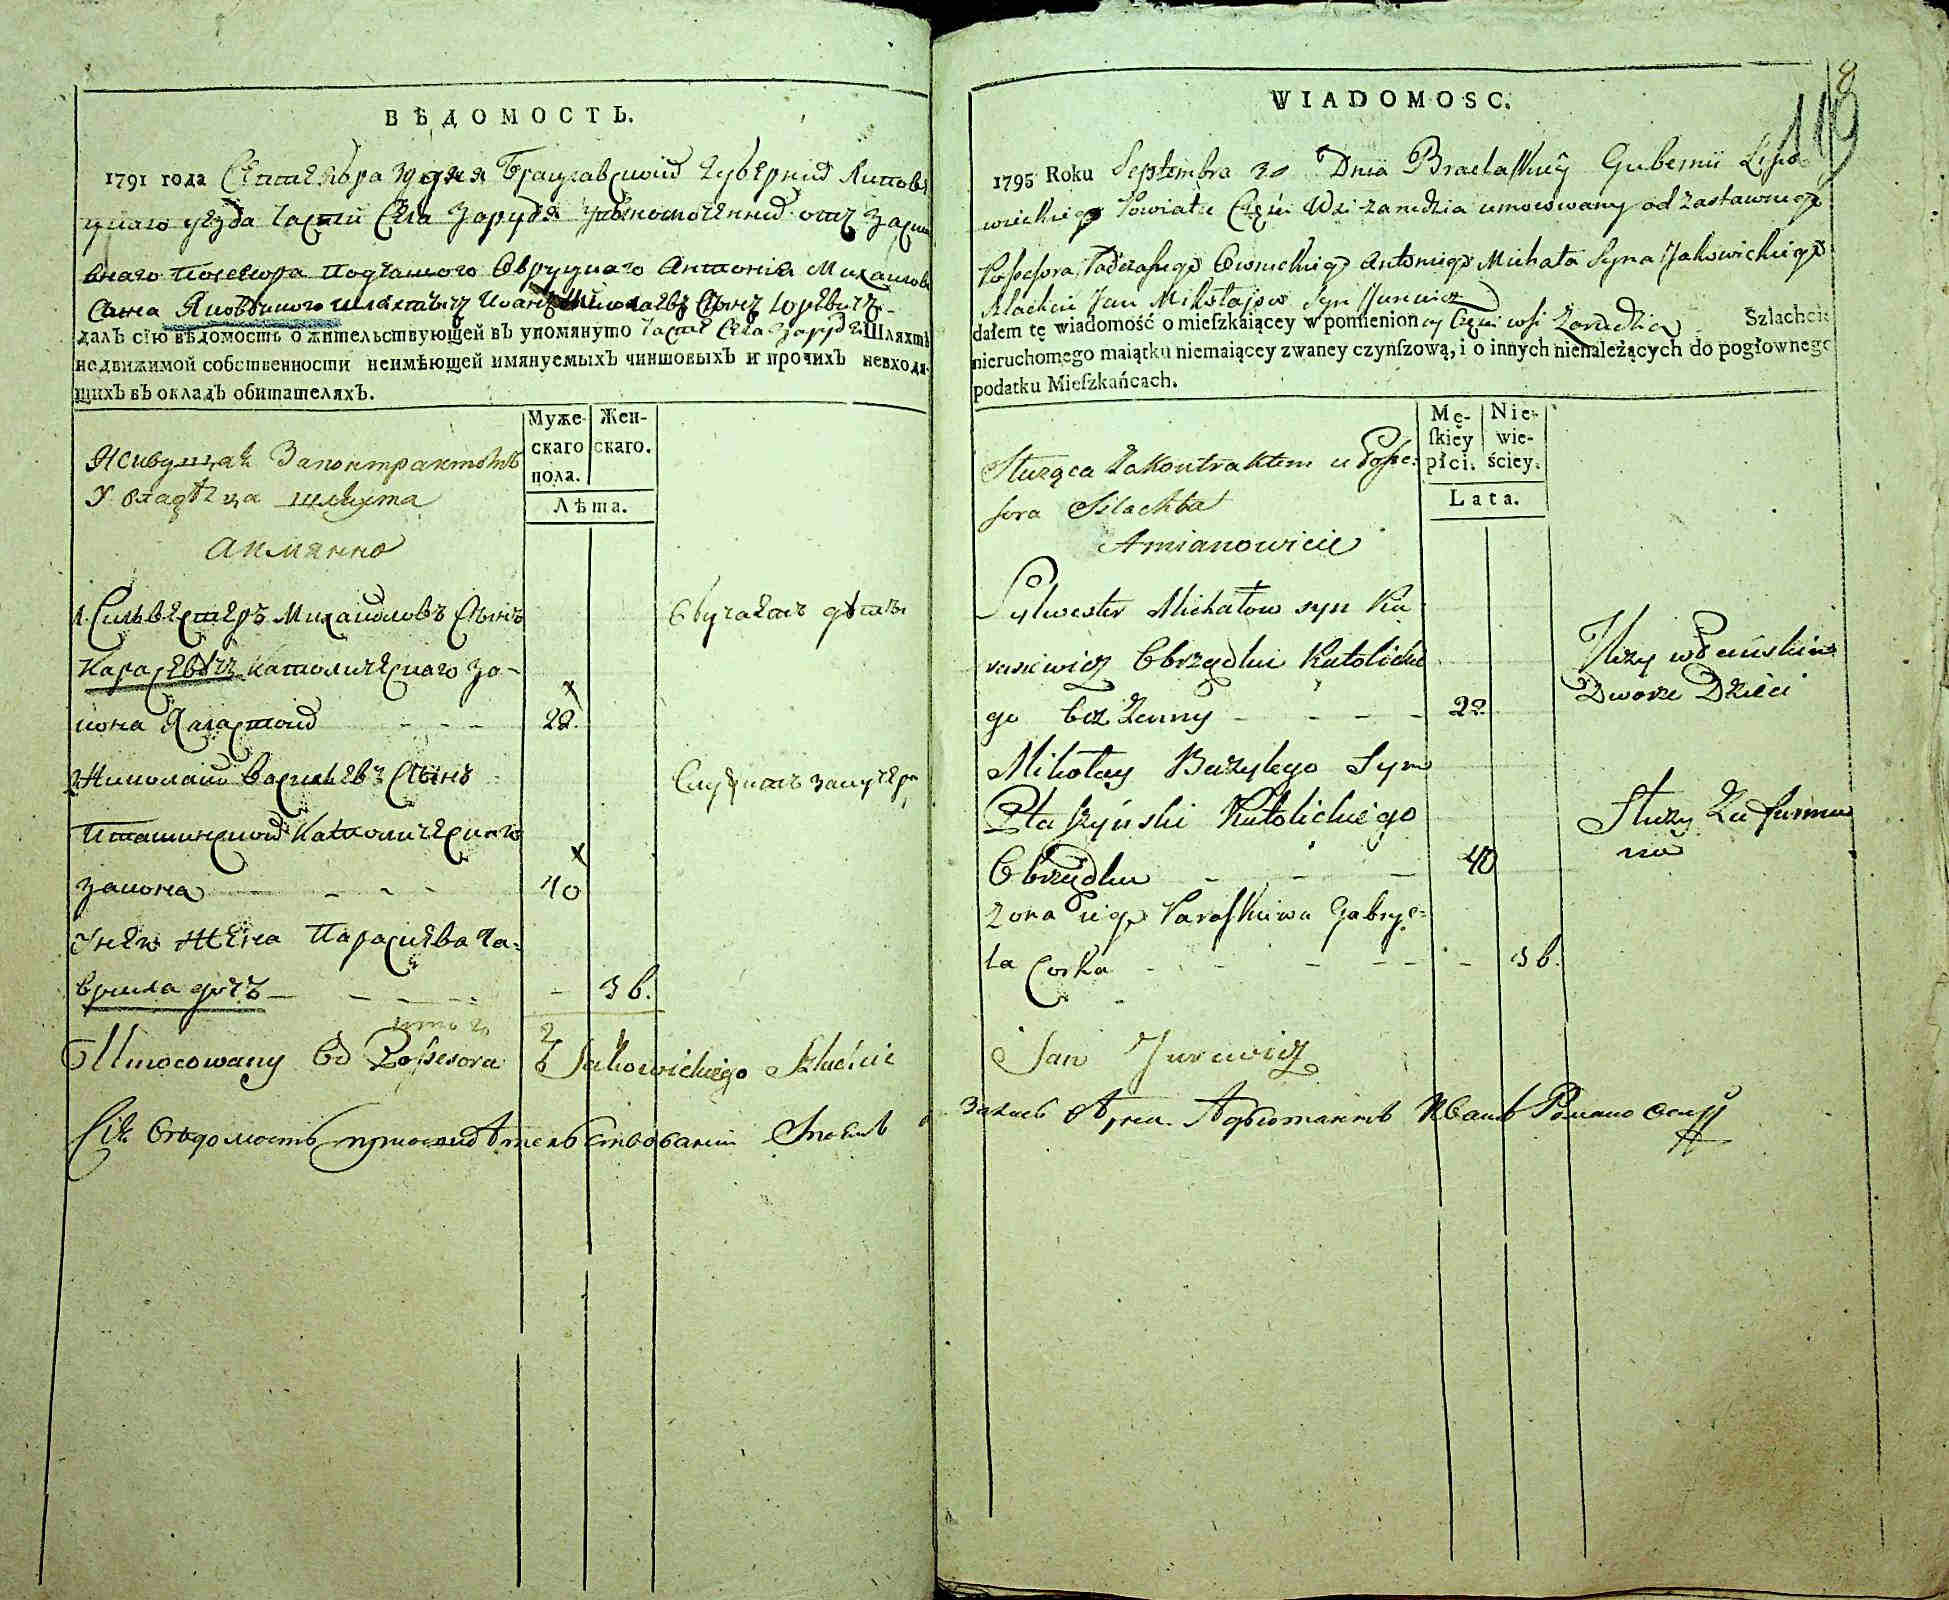 ВѢДОМОСТЬ.
1791 года Сентября 30 дня Брацлавской Губернии Липовѣ
цкаго уезда Части Села Зарудя уполномоченнid отъ Заста
внаго Посесора Подчашого Овруцкаго Антонія Михаилова
Сына Яковицкого шляхтичъ Иоанъ Николаевъ Сынъ Юревичъ
далъ сію вѣдомость о жительствующей въ упомянуто Части Села Зарудя Шляхтѣ
недвижимой собственности неимѣющей имянуемыхъ чиншовыхъ и прочихъ невходя-
щихъ въ окладъ обитателяхъ.
Муже-
скаго
пола.
Жен-
скаго.
Лѣта.
Живущая Законтрактомъ
У владѣлца шляхта
Аимянно
1. Сильвестеръ Михайловъ Сынъ
Карасевичъ Католическаго за-
кона Холостой - - - 22.
Обучаетъ дѣтей
2 Николай Васильевъ Сынъ
Пташинской Католическаго
закона - - - - 40
Служитъ за кучера
У него Жена Парасκева Га-
врила дочь - - - - 36.
итого 2
Umocowany Od Possesora Jakowickiego Szlachcic
Сію вѣдомость
WIADOMOSC.
8
119
1795 Roku Septembra 30 Dnia Bracławskiey Gubernii Lipo-
wieckiego Powiatu Części Wsi Zarudzia umocowany od Zastawnego
Possesora Podczaszego Owruckiego Antoniego Michała Syna Jakowickiego
Szlachcic Jan Mikołajow Syn Jurewicz
dałem tę wiadomość o mieſzkaiącey w pomienioney Części wsi Zarudzia Szlachcie
nieruchomego maiątku niemaiącey zwaney czynſzową, i o innych nienależących do pogłownego
podatku Mieſzkańcach.
Mę-
ſkiey
płci.
Nie-
wie-
ściey.
Lata.
Służąca Zakontraktem u Posse-
sora Szlachta
Amianowicie
Sylwester Michałow syn Ka-
rasiewicz Obrządku Katolickie
go bez Zenny - - - - 22.
Uczy w Dworze Dzieci
Mikołay Bazylego Syn
Ptaszyński Katolickiego
Obrządku - - - 40
Służy Za furma
na
Zona iego Paraskiewa Gabrye-
la Corka - - - - - - 36.
Jan Jurewicz
Иванъ